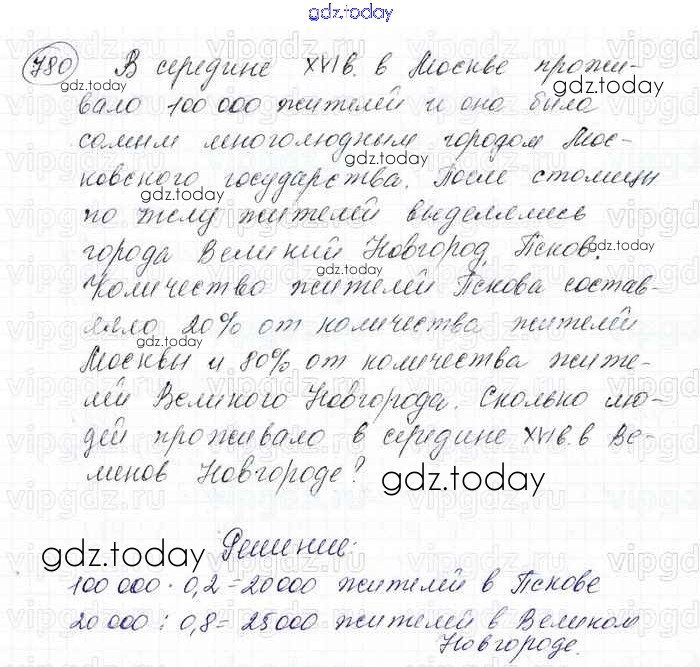 gdz.today
780 В середине XVI в. в Москве прожи-
gdz.today
вало 100 000 жителей и она была
самым многолюдным городом Мос-
gdz.today
ковского государства. После столицы
gdz.today
по числу жителей выделялись
города Великий Новгород, Псков.
gdz.today
gdz.today
Количество жителей Пскова состав-
ляло 20% от количества жителей
gdz.today
Москвы и 80% от количества жите-
лей Великого Новгорода. Сколько лю-
дей проживало в середине XVI в. в Ве-
ликов Новгороде?
gdz.today
gdz.today
Решение:
100 000 · 0,2 = 20000 жителей в Пскове
20 000 : 0,8 = 25000 жителей в Великом
Новгороде.